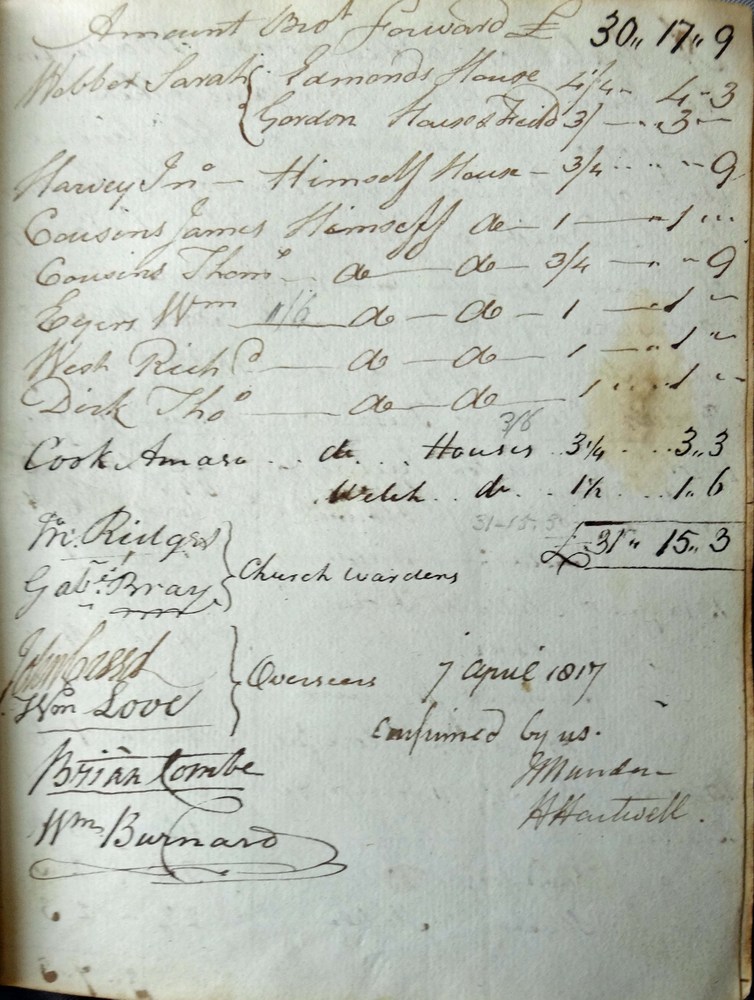 Amount Brot Forward £ 30,, 17,, 9
Webber Sarah { Edmonds House 4 1/4 - 4 - 3
{ Gordon House & Field 3/ - 3 -
Harvey Jno - Himself House - 3/4 - 9
Cousins James Himself do - 1 - 1 -
Cousins Thoms - do - do - 3/4 - 9
Eyers Wm 1/6 - do - do - 1 - 1 -
West Richd - do - do - 1 - 1 -
Dick Thos - do - do - 1 - 1 -
3/6
Cook Amasa .. do ... Houses .. 3 1/4 ... 3,, 3
Welch .. do .. 1 1/2 ... 1,, 6
31-15-3
£ 31,, 15,, 3
Wm. Ridges }
Gabl. Bray } Church Wardens
}
Wm Love } Overseers 7 April 1817
Confirmed by us.
Brian Combe
J Munden
Wm Burnard
H Hartwell.